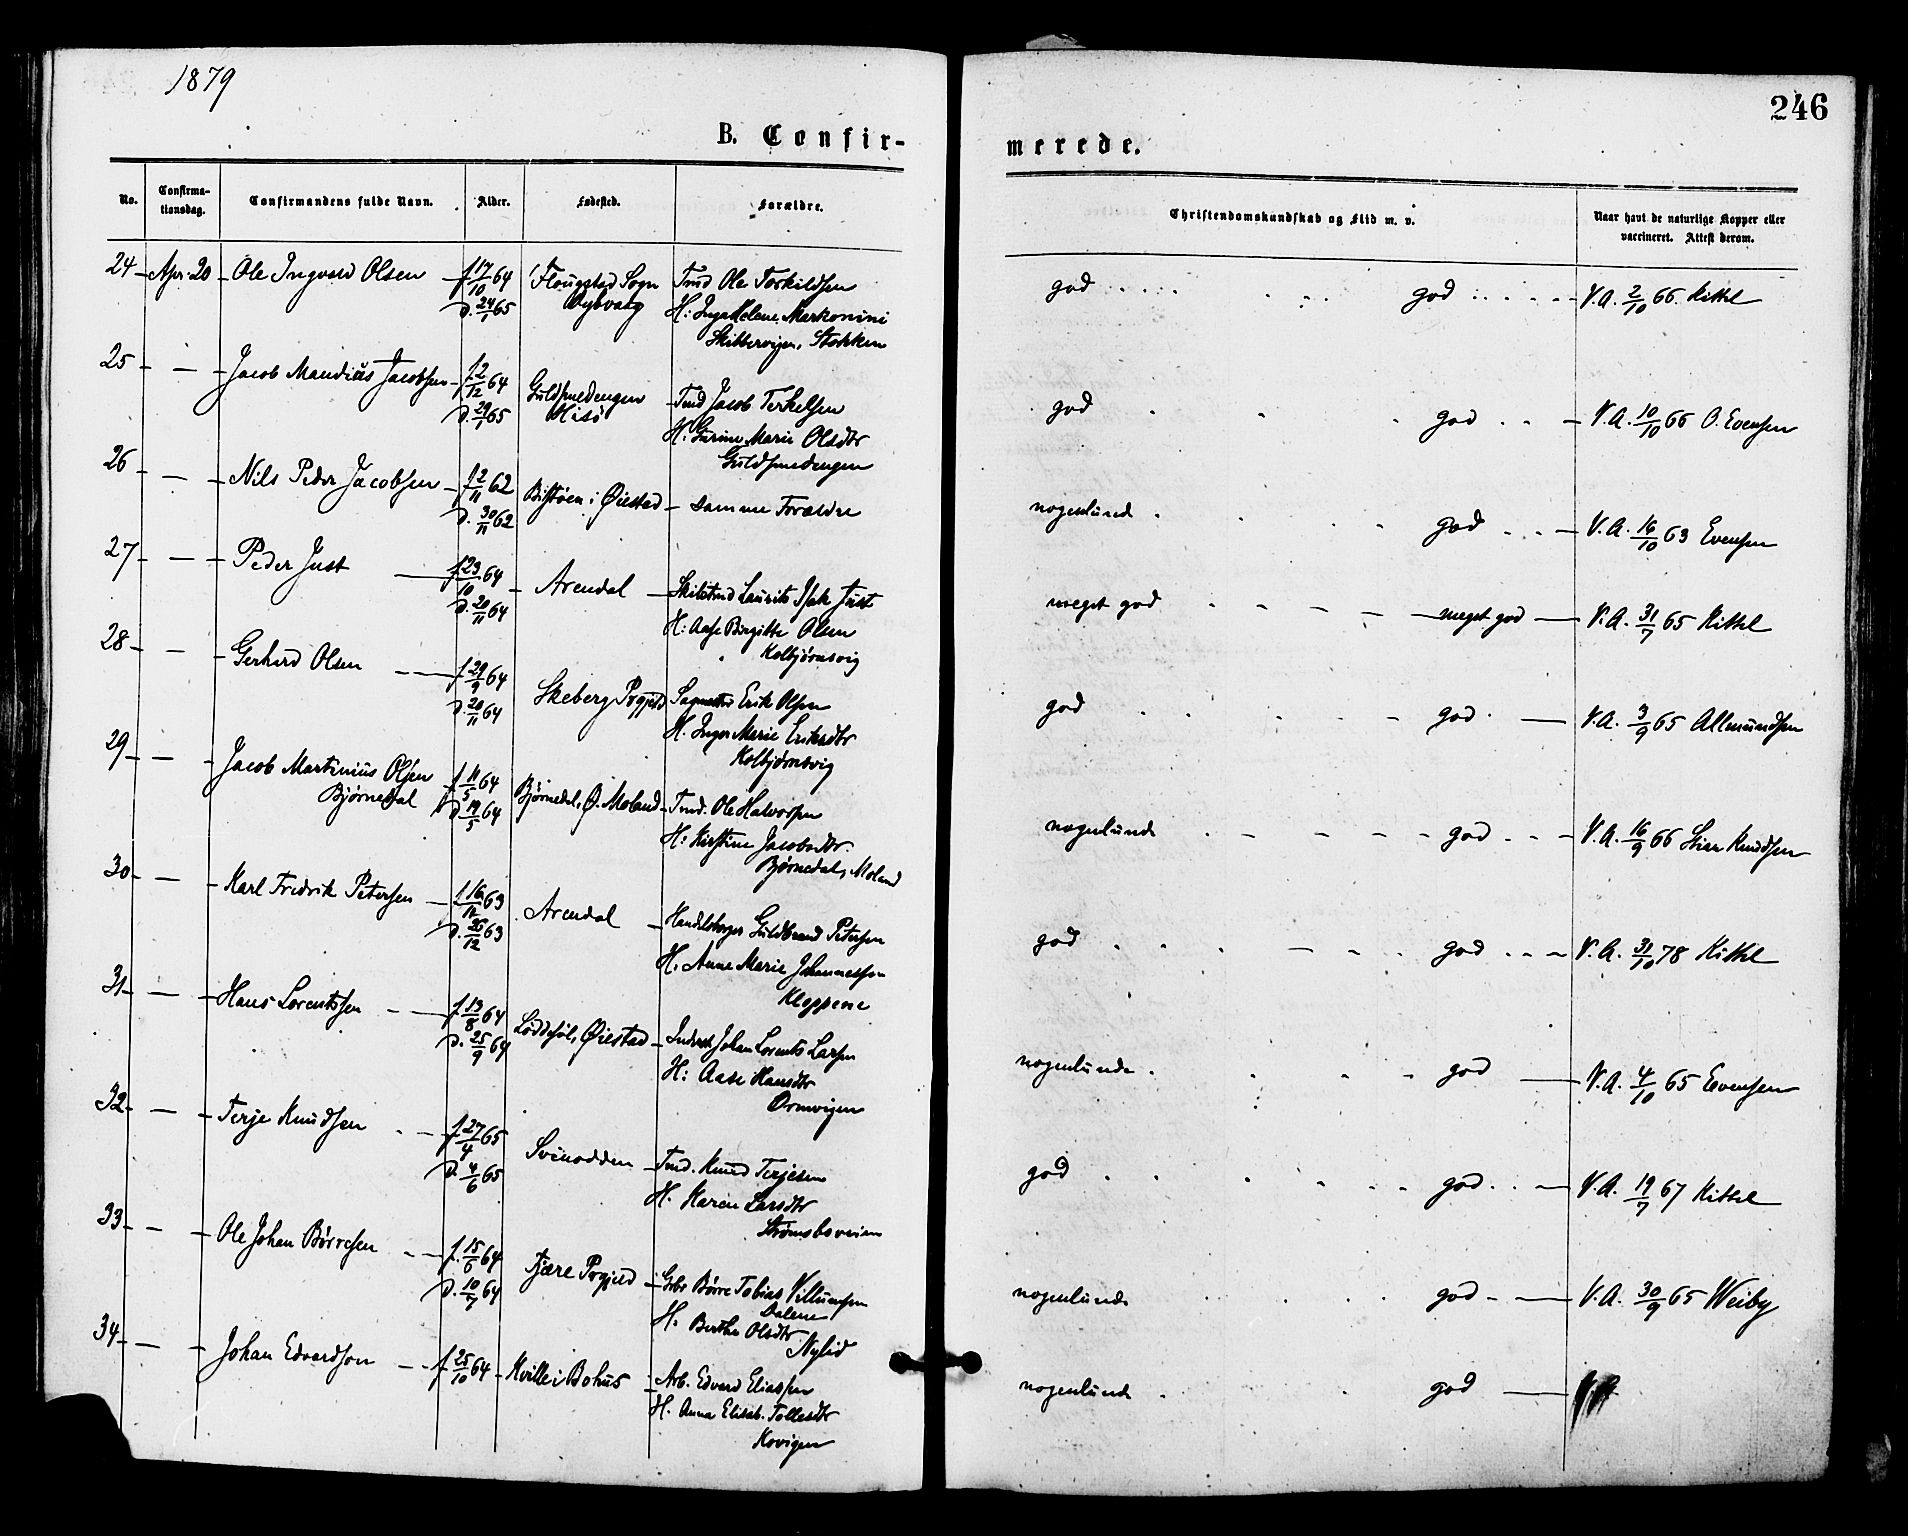 1879
246
B. Confir-
merede.
No.
Confirma-
tionsdag.
Confirmandens fulde Navn.
Alder.
Fødested.
Forældre.
Christendomskundskab og Flid m. v.
Naar havt de naturlige Kopper eller
vaccineret. Attest derom.
24 - Apr. 20 - Ole Ingvald Olsen - f. 17/10 64 Flougstad Sogn Tmd Ole Torkildsen god god V.A. 2/10 66 Kittel
D. 24/1 65 Dybvaag H: Inga Helene Markonini
Skibbervigen, Stokken
25 - — - Jacob Mandius Jacobsen - f. 2/12 64 Guldsmedengen Tmd Jacob Terkelsen god god V.A. 10/10 66 O. Evensen
D. 29/1 65 Hisø H: Gurine Marie Olsdtr
Guldsmedengen
26 - — - Nils Peder Jacobsen - f. 2/11 62 i Øiestad - samme Forældre nogenlunde god V.A. 16/10 63 Evensen
D. 30/11 62
27 - — - Peder Just — f. 23/10 64 - Arendal - Laurits Isak Just meget god meget god V.A. 31/7 65 Kittel
D. 20/11 64 H: Aase Birgitte Olsen
Kolbjørnsvig
28 - — - Gerhard Olsen — f. 29/9 64 Skeberg Prgjeld Erik Olsen god god V.A. 3/9 65 Allmundsen
D. 20/11 64 H. Inger Marie Eriksdtr
Kolbjørnsvig
29 - — - Jacob Martinius Olsen f. 11/5 64 Bjørnedal, Ø. Moland - Tmd. Ole Halvorsen nogenlunde god V.A. 16/9 66 Knudsen
Bjørnedal D. 19/5 64 H: Kirstine Jacobsdtr.
Bjørnedal, Moland
30 - — - Karl Fredrik Petersen - f. 16/11 63 Arendal - Handelsborger Guldbrand Petersen god god V.A. 31/10 78 Kittel
D. 26/12 63 H: Anne Marie Johannessen
Kloppene
31 - — - Hans Lorentsen — f. 13/8 64 Løddesøl, Øiestad - Inderst Johan Lorents Larsen nogenlunde god V.A. 4/10 65 Evensen
D. 25/9 64 H: Aase Hansdtr
Ormvigen
32 - — - Terje Knudsen - f. 27/4 65 Svinodden - Tmd. Knud Terjesen god god V.A. 19/7 67 Kittel
D. 4/6 65 H. Karen Larsdtr
Strømsboveien
33 - — - Ole Johan Børresen - f. 15/6 64 Fjære Prgjeld - Grbr Børre Tobias Villumsen nogenlunde god V.A. 30/9 65 Weiby
D. 10/7 64 Dalene
H. Berthe Olsdtr
Nylid
34 - — - Johan Edvardson - f. 25/10 64 - Kville i Bohus - Arb. Edvard Eliassen nogenlunde god
H. Anna Elisab. Tollesdtr
Kovigen